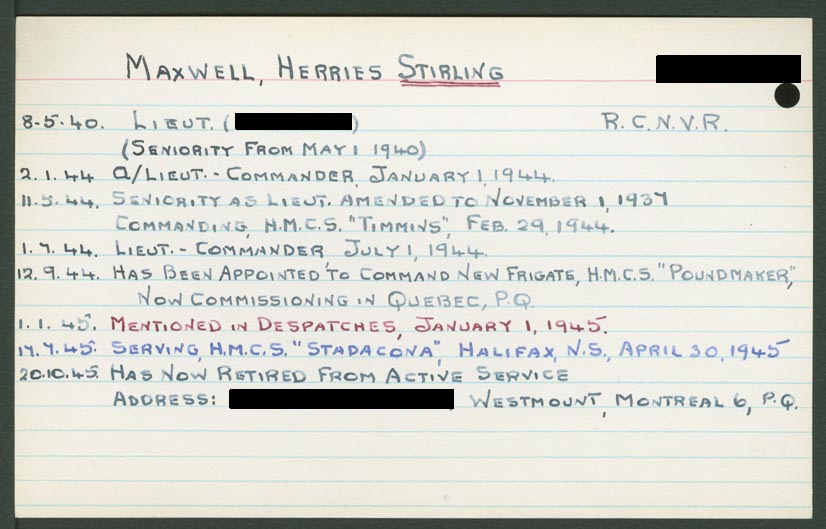 MAXWELL, HERRIES STIRLING
8-5-40. LIEUT. ( ) R.C.N.V.R.
(SENIORITY FROM MAY 1 1940)
2.1.44 A/LIEUT.-COMMANDER, JANUARY 1, 1944.
11.5.44. SENIORITY AS LIEUT. AMENDED TO NOVEMBER 1, 1937
COMMANDING, H.M.C.S. "TIMMINS", FEB. 29, 1944.
1.7.44. LIEUT.-COMMANDER JULY 1, 1944.
12.9.44. HAS BEEN APPOINTED TO COMMAND NEW FRIGATE, H.M.C.S. "POUNDMAKER",
NOW COMMISSIONING IN QUEBEC, P.Q.
1.1.45. MENTIONED IN DESPATCHES, JANUARY 1, 1945.
17.7.45. SERVING, H.M.C.S. "STADACONA", HALIFAX, N.S., APRIL 30, 1945
20.10.45. HAS NOW RETIRED FROM ACTIVE SERVICE
ADDRESS: WESTMOUNT, MONTREAL 6, P.Q.